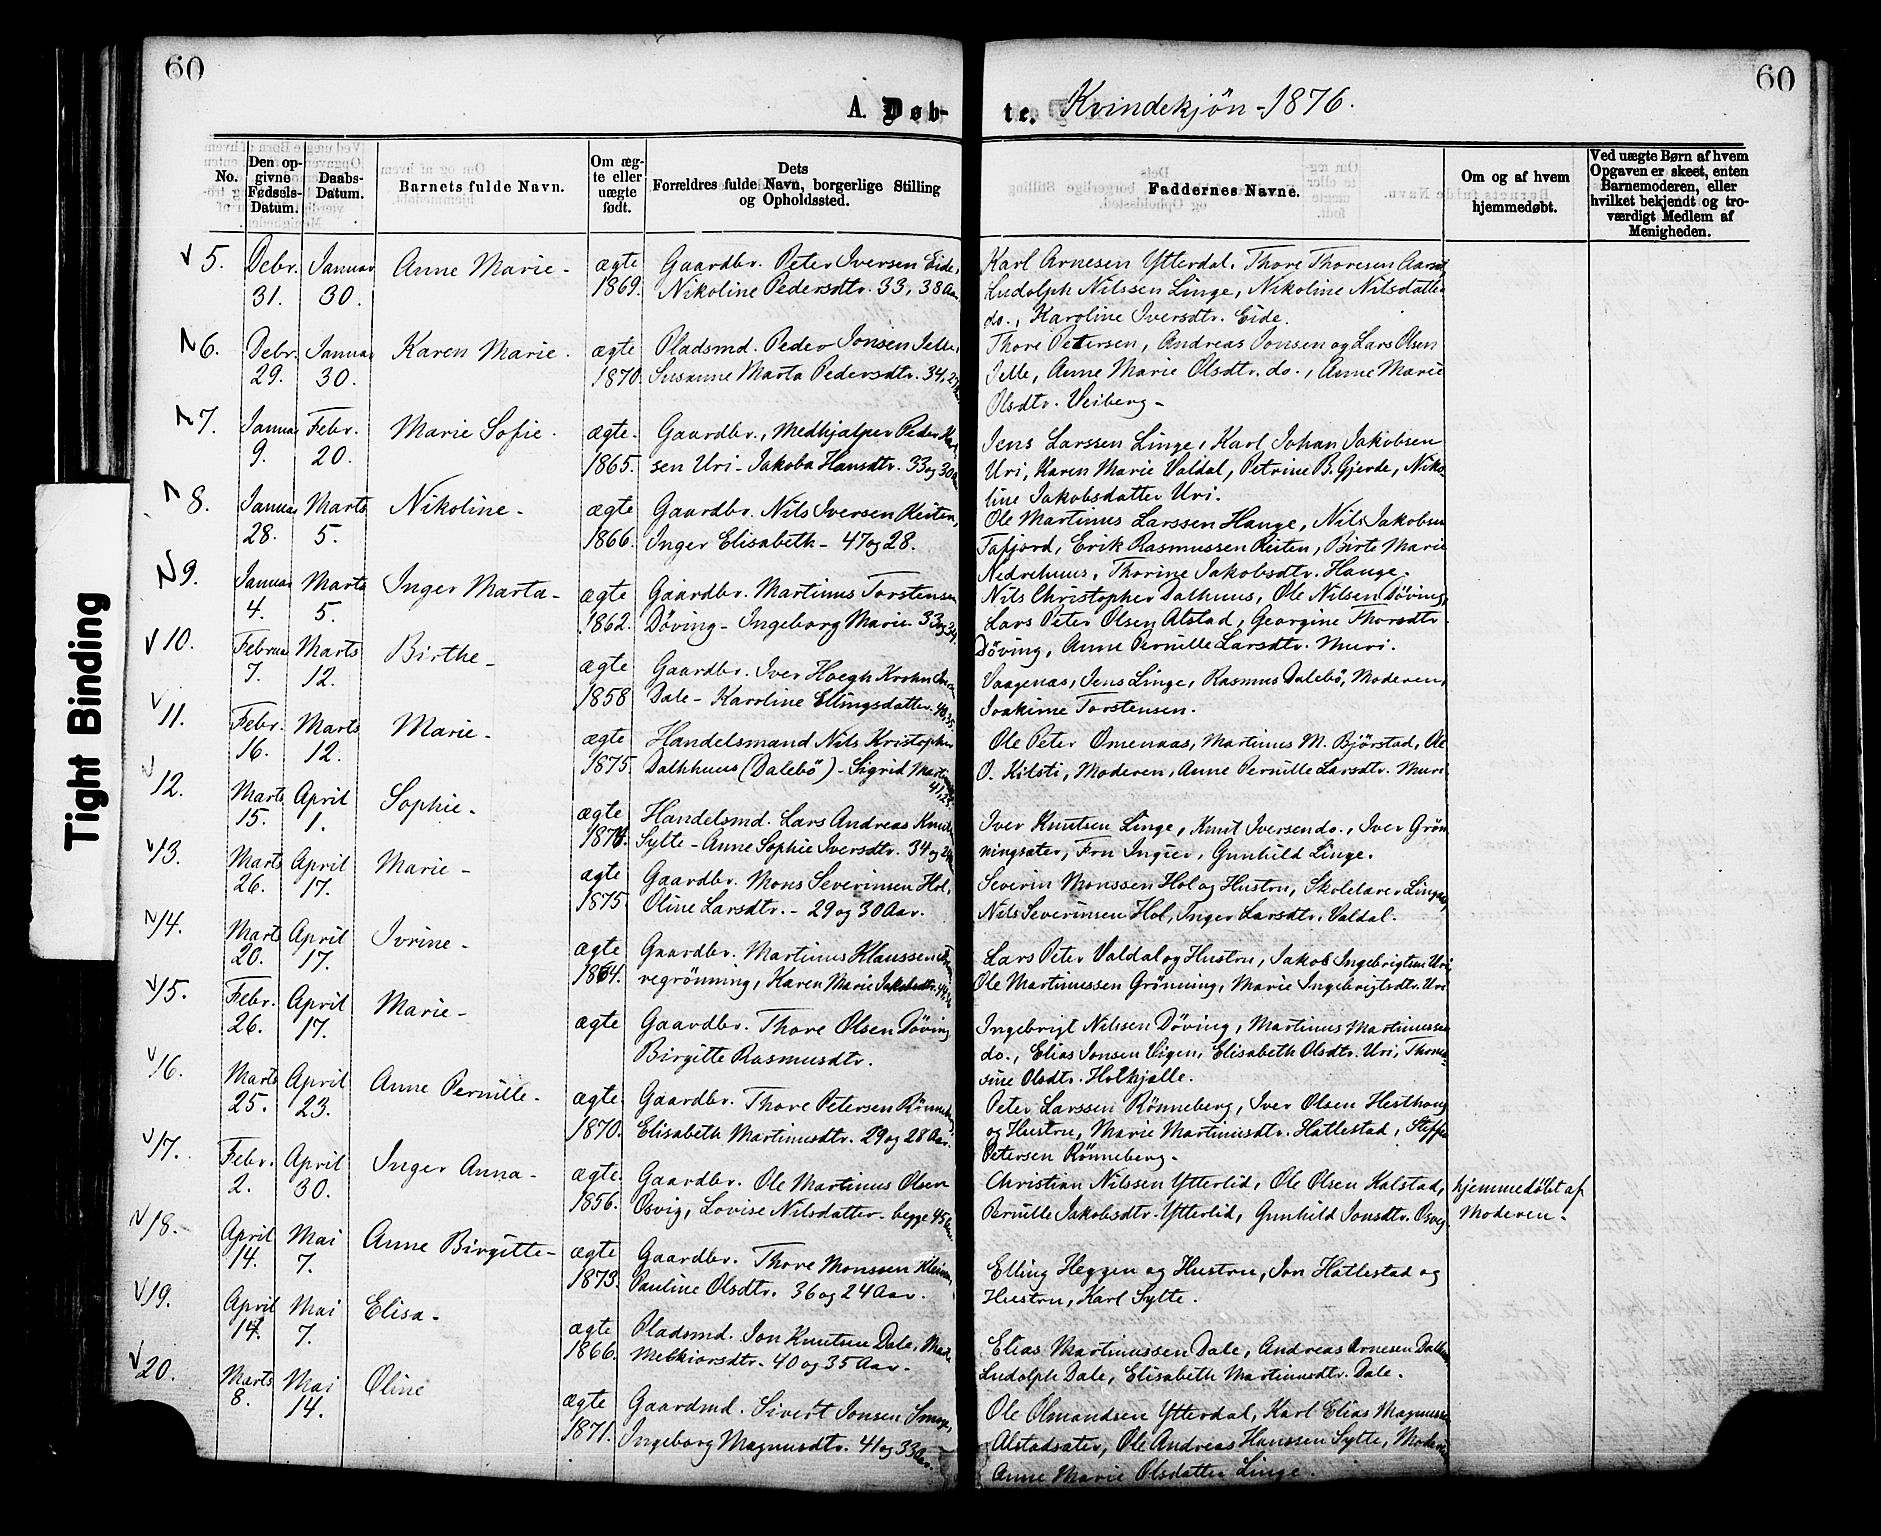 60
60
A. Døb-
te. Kvindekjön - 1876.
No.
Den op-
givne
Fødsels-
Datum.
Daabs-
Datum.
Barnets fulde Navn.
Om æg-
te eller
uægte
født.
Dets
Forældres fulde Navn, borgerlige Stilling
og Opholdssted.
Faddernes Navne.
Om og af hvem
hjemmedøbt.
Ved uægte Børn af hvem
Opgaven er skeet, enten
Barnemoderen, eller
hvilket bekjendt og tro-
værdigt Medlem af
Menigheden.
5. Debr. 31. Januar 30. Anne Marie - ægte 1869.
Gaardbr. Peter Iversen Eide,
Nikoline Pedersdtr. 33, 38 Aar
Karl Arnesen Ytterdal, Thore Thoresen
Ludolph Nilssen Linge, Nikoline Nilsdatter
do., Karoline Iversdtr. Eide.
6. Debr. 29. Januar 30. Karen Marie. ægte 1870.
Pladsmd. Peder Jonsen Selle,
Susanne Marta Pedersdtr. 34,
Thore Petersen, Andreas Jonsen og Lars Olsen
Selle, Anne Marie Olsdtr. do., Anne Marie
Olsdtr. Veiberg -
7. Januar 9. Febr. 20. Marie Sofie. ægte. 1865.
Gaardbr., Medhjælper Peder
sen Uri - Jakoba Hansdtr. 33 og 30
Jens Larssen Linge, Karl Johan Jakobsen
Uri, Karen Marie Valdal, Petrine B. Gjerde, Niko-
line Jakobsdatter Uri.
8. Januar 28. Marts 5. Nikoline - ægte 1866.
Gaardbr. Nils Iversen Reiten,
Inger Elisabeth - 47 og 28.
Ole Martinus Larssen Hauge, Nils Jakobsen
Tafjord, Erik Rasmussen Reiten, Birte Marie
Nedrehuus, Thorine Jakobsdtr. Hauge.
9. Januar 4. Marts 5. Inger Marta - ægte 1862.
Gaardbr. Martinus Torstensen
Döving - Ingeborg Marie 33 og 34.
Nils Christopher Dalhuus, Ole Nilsen Döving,
Lars Peter Olsen Alstad, Georgine Thorsdtr.
Döving, Anne Pernille Larsdtr. Muri.
10. Februar 7. Marts 12. Birthe - ægte 1858
Gaardbr. Iver Hoegh Krohn
Dale - Karoline Ellingsdatter.
Vaagenæs, Jens Linge, Rasmus Dalebö, Moderen,
Joakime Torstensen.
11. Febr. 16. Marts 12. Marie - ægte 1875.
Handelsmand Nils Kristopher
Dalhhuus (Dalebö) - Sigrid
Ole Peter Omenaas, Martinus M. Bjørstad, Ole
O. Kilsti, Moderen, Anne Pernille Larsdtr. Muri
12. Marts 15. April 1. Sophie - ægte
Handelsmd. Lars Andreas Knutsen
Sylte - Anne Sophie Iversdtr. 34 og
Iver Knutsen Linge, Knut Iversen do., Iver Grön-
ningsæter, Fru Ingier, Gunhild Linge.
13. Marts 26. April 17. Marie - ægte 1875.
Gaardbr. Mons Severinsen Hol,
Oline Larsdtr. - 29 og 30 Aar.
Severin Monssen Hol og Hustru, Skolelærer Linge,
Nils Severinsen Hol, Inger Larsdtr. Valdal.
14. Marts 20. April 17. Ivrine - ægte 1864.
Gaardbr. Martinus Klaussen
regrönning, Karen Marie Jakobsdtr.
Lars Peter Valdal og Hustru, Jakob Ingebrigtsen Uri,
Ole Martinussen Grönning, Marie Ingebrigtsdtr. Uri
15. Febr. 26. April 17. Marie - ægte
Gaardbr. Thore Olsen Döving
Birgitte Rasmusdtr.
Ingebrigt Nilssen Döving, Martinus Martinussen
do., Elias Jonsen Vigen, Elisabeth Olsdtr. Uri, Thoma-
sine Olsdtr. Holkjølle.
16. Marts 25. April 23. Anne Pernille - ægte 1870.
Gaardbr. Thore Petersen Rönneberg,
Elisabeth Martinusdtr. 29 og 28 Aar.
Peter Larssen Rönneberg, Iver Olsen Hesthaug
og Hustru, Marie Martinusdtr. Hatlestad, Steffen
Petersen Rönneberg -
17. Febr. 2. April 30. Inger Anna - ægte. 1856.
Gaardbr. Ole Martinus Olsen
Osvig, Lovise Nilsdatter - begge 45 Aar.
Christian Nilssen Ytterlid, Ole Olsen Kalstad,
Pernille Jakobsdtr. Ytterlid, Gunhild Jonsdtr. Osvig.
hjemmedöbt af
Moderen -
18. April 14. Mai 7. Anne Birgitte - ægte 1873.
Gaardbr. Thore Monssen
Pauline Olsdtr. 36 og 24 Aar.
Elling Heggen og Hustru, Jon Hatlestad og
Hustru, Karl Sylte.
19. April 14. Mai 7. Elisa - ægte 1866.
Pladsmd. Jon Knutsen Dale, Marie
Melkiorsdtr. 40 og 35 Aar.
Elias Martinussen Dale, Andreas Arnesen Dalhuus,
Ludolph Dale, Elisabeth Martinusdtr. Dale.
20. Marts 8. Mai 14. Oline ægte 1871.
Gaardmd. Sivert Jonsen Smoge,
Ingeborg Magnusdtr. 41 og 33 Aar.
Ole Olmandsen Ytterdal, Karl Elias Magnussen
Alstadsæter, Ole Andreas Hanssen Sylte, Moderen,
Anne Marie Olsdatter Linge.
Tight Binding